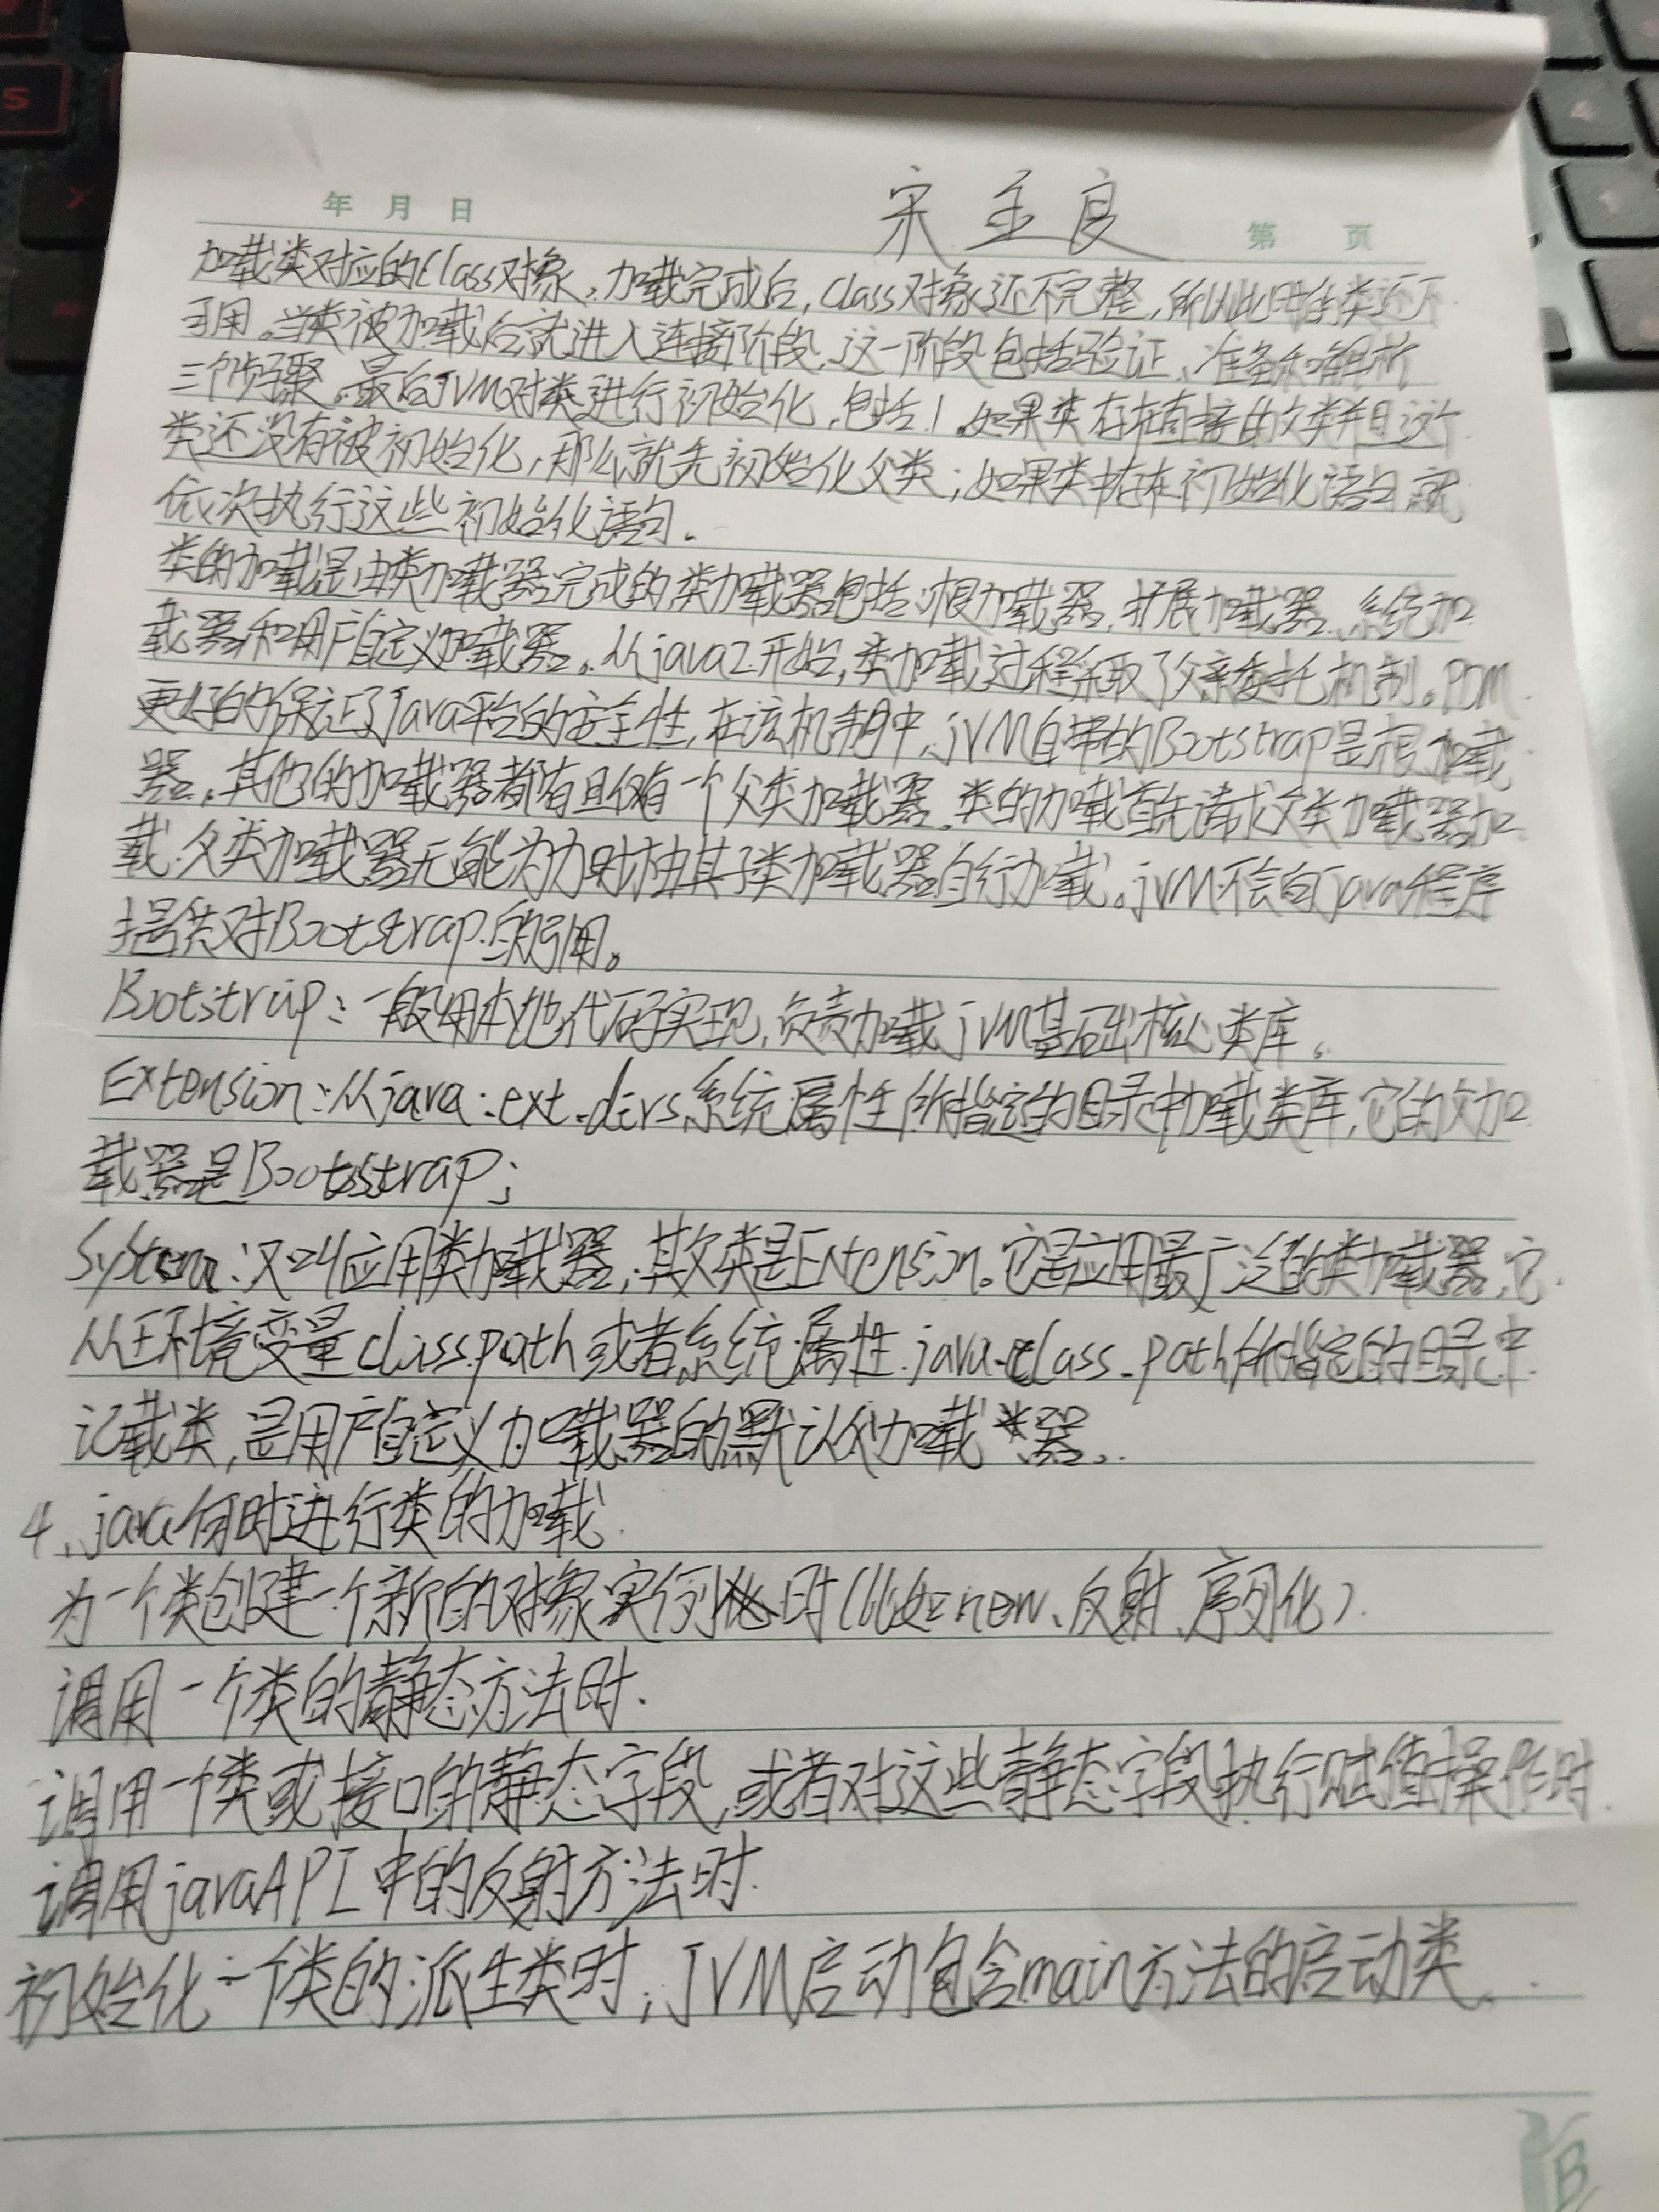 年 月 日
宋 全 良
第 页
加载类对应的Class对象,加载完成后,Class对象还不完整,所以此时的类还不
可用。当类被加载后就进入连接阶段,这一阶段包括验证、准备和解析
三个步骤。最后JVM对类进行初始化,包括1.如果类存在直接的父类并且这个
类还没有被初始化,那么就先初始化父类;如果类中存在初始化语句,就
依次执行这些初始化语句。
类的加载是由类加载器完成的,类加载器包括:根加载器,扩展加载器、系统加
载器和用户自定义加载器。从java2开始,类加载过程采取了父亲委托机制。PDM
更好的保证了Java平台的安全性,在该机制中,JVM自带的Bootstrap是根加载
器。其他的加载器都有且仅有一个父类加载器。类的加载首先请求父类加载器加
载,父类加载器无能为力时才由其子类加载器自行加载。JVM不会向java程序
提供对Bootstrap的引用。
Bootstrap:一般用本地代码实现,负责加载JVM基础核心类库。
Extension:从java.ext.dirs系统属性所指定的目录中加载类库,它的父加
载器是Bootsstrap;
System:又叫应用类加载器,其父类是Extension。它是应用最广泛的类加载器,它
从环境变量classpath或者系统属性java.class.path所指定的目录中
记载类,是用户自定义加载器的默认父加载器。
4、java何时进行类的加载
为一个类创建一个新的对象实例时(比如new、反射、序列化)
调用一个类的静态方法时.
调用一个类或接口的静态字段,或者对这些静态字段执行赋值操作时.
调用javaAPI中的反射方法时.
初始化一个类的派生类时,JVM启动包含main方法的启动类。
B